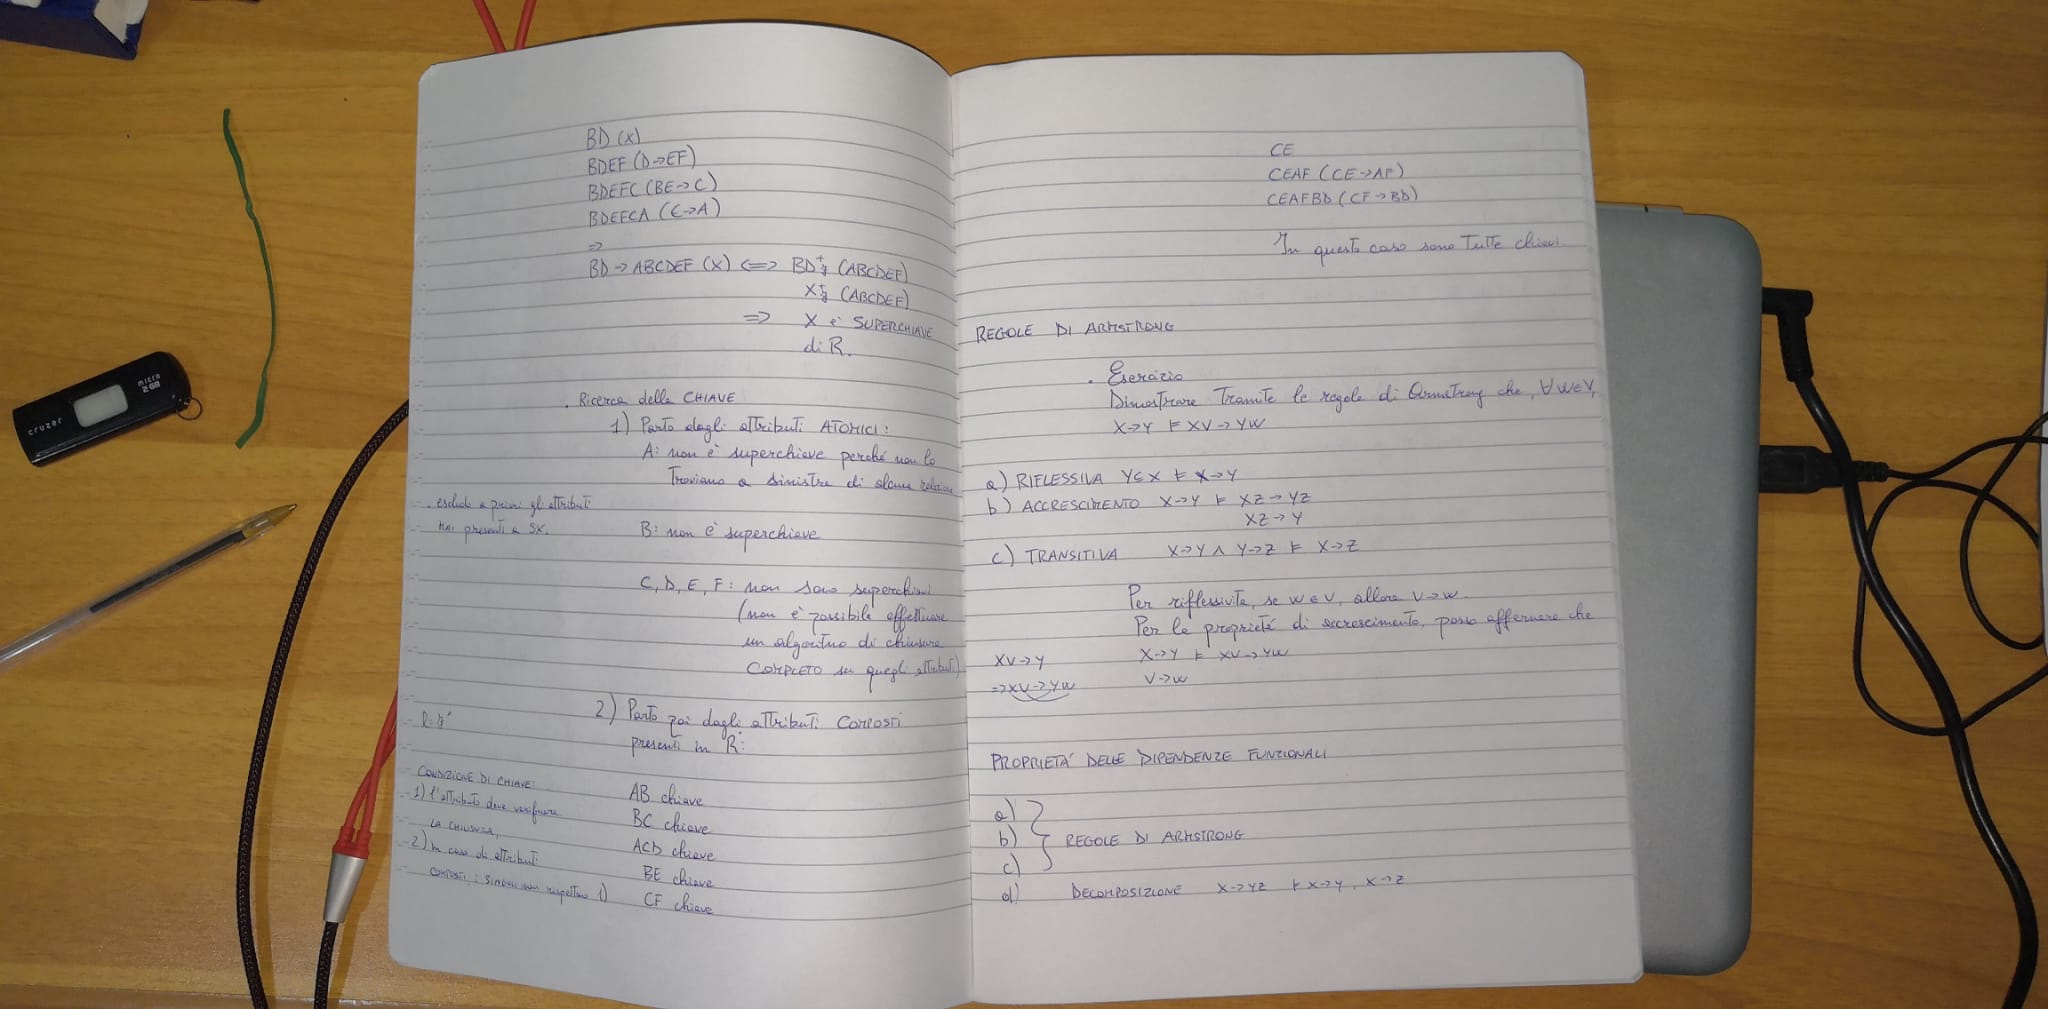 BD (X)
BDEF (D→EF)
BDEFC (BE→C)
BDEFCA (C→A)
=>
BD→ABCDEF (X) <=> BD⁺ (ABCDEF)
X⁺ (ABCDEF)
=> X è SUPERCHIAVE
di R.
. Ricerca della CHIAVE
1) Parto dagli attributi ATOMICI:
A: non è superchiave perché non lo
troviamo a sinistra di alcuna relazione
. escludo a priori gli attributi
mai presenti a SX.
B: non è superchiave
C, D, E, F: non sono superchiavi
(non è possibile effettuare
un algoritmo di chiusura
COMPLETO su quegli attributi)
2) Parto poi dagli attributi COMPOSTI
presenti in R:
CONDIZIONE DI CHIAVE:
1) l'attributo deve verificare
LA CHIUSURA,
2) In caso di attributi
COMPOSTI, i SINGOLI non rispettano 1)
AB chiave
BC chiave
ACD chiave
BE chiave
CF chiave
CE
CEAF (CE→AF)
CEAFBD (CF→BD)
In questo caso sono tutte chiavi
REGOLE DI ARMSTRONG
. Esercizio
Dimostrare tramite le regole di Armstrong che, ∀W∈V,
X→Y ⊧ XV→YW
a) RIFLESSIVA Y⊆X ⊧ X→Y
b) ACCRESCIMENTO X→Y ⊧ XZ→YZ
XZ→Y
c) TRANSITIVA X→Y ∧ Y→Z ⊧ X→Z
Per riflessività, se W∈V, allora V→W.
Per la proprietà di accrescimento, posso affermare che
XV→Y X→Y ⊧ XV→YW
=>XV→YW V→W
PROPRIETA' DELLE DIPENDENZE FUNZIONALI
a)
b) } REGOLE DI ARMSTRONG
c)
d) DECOMPOSIZIONE X→YZ ⊧ X→Y, X→Z
cruzer
micro
2GB